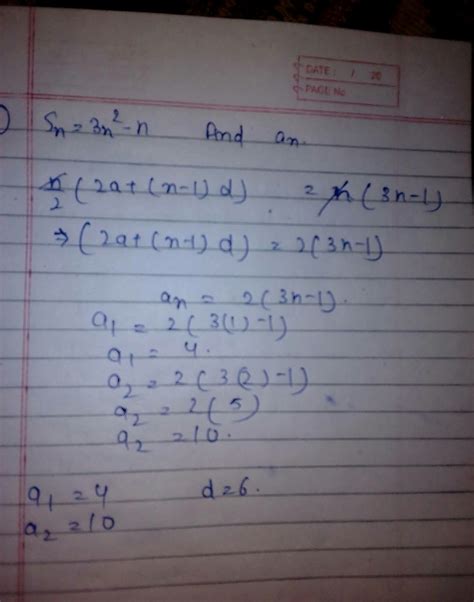 DATE: / 20
PAGE No
) Sn = 3n² - n And an.
n/2 (2a + (n-1) d) = n (3n-1)
⇒ (2a + (n-1) d) = 2(3n-1)
an = 2(3n-1).
a₁ = 2(3(1)-1)
a₁ = 4.
a₂ = 2(3(2)-1)
a₂ = 2(5)
a₂ = 10.
a₁ = 4 d = 6.
a₂ = 10